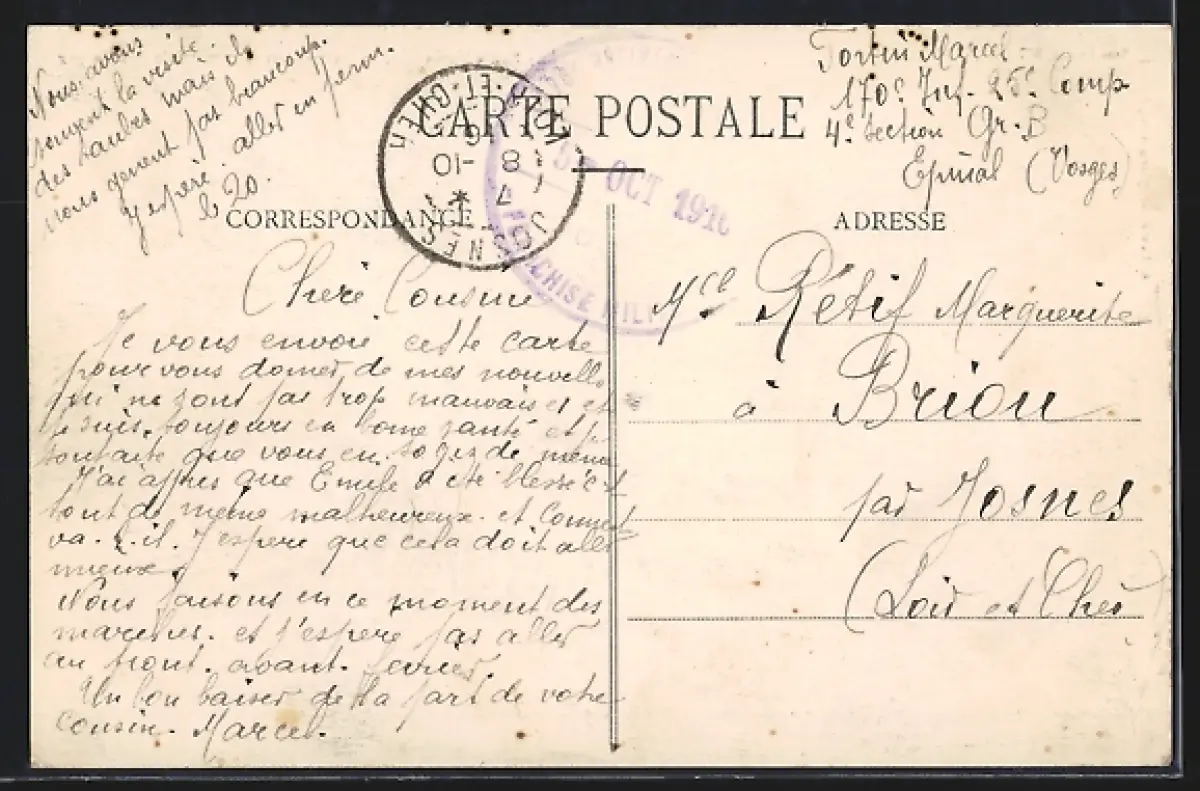 Nous avons
souvent la visite
des taubes mais ils
nous genent pas beaucoup.
J'espère aller en perm.
le 20.
Fortin Marcel
170e Inf. 25e Comp
4e Section Gr. B
Epinal (Vosges)
CARTE POSTALE
CORRESPONDANCE
ADRESSE
JOSNES
LOIR-ET-CHER
8 -10
OCT 191
FRANCHISE MILI
Chère Cousine
Je vous envoie cette carte
pour vous donner de mes nouvelles
qui ne sont pas trop mauvaises et
je suis toujours en bonne santé et je
souhaite que vous en soyez de même
J'ai appris que Emile a été blessé c'est
tout de même malheureux. et comment
va-t-il. J'espere que cela doit aller
mieux.
Nous faisons en ce moment des
marches. et j'espère pas aller
au front. avant. fevrier.
Un bon baiser de la part de votre
cousin. Marcel.
Mell Rétif Marguerite
à Briou
par Josnes
(Loir et Cher